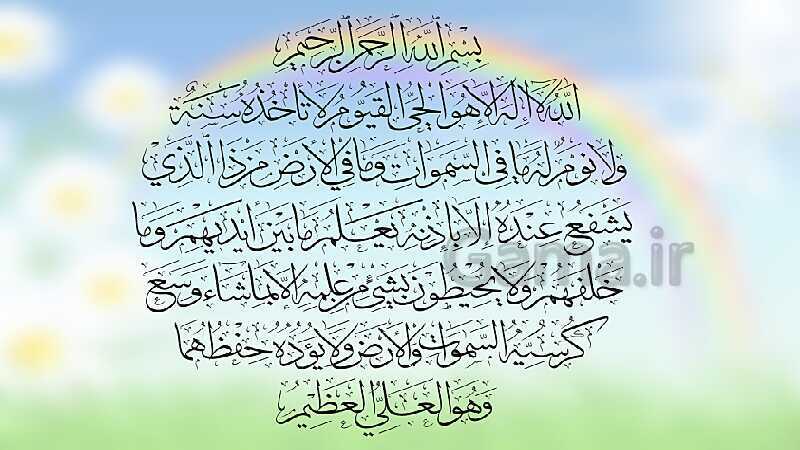 بِسْمِ ٱللَّهِ ٱلرَّحْمَٰنِ ٱلرَّحِيمِ
اللَّهُ لَا إِلَٰهَ إِلَّا هُوَ الْحَيُّ الْقَيُّومُ لَا تَأْخُذُهُ سِنَةٌ
وَلَا نَوْمٌ لَهُ مَا فِي السَّمٰوَاتِ وَمَا فِي الْأَرْضِ مَنْ ذَا الَّذِي
يَشْفَعُ عِنْدَهُ إِلَّا بِإِذْنِهِ يَعْلَمُ مَا بَيْنَ أَيْدِيهِمْ وَمَا
خَلْفَهُمْ وَلَا يُحِيطُونَ بِشَيْءٍ مِنْ عِلْمِهِ إِلَّا بِمَا شَاءَ وَسِعَ
كُرْسِيُّهُ السَّمٰوَاتِ وَالْأَرْضَ وَلَا يَؤُدُهُ حِفْظُهُمَا
وَهُوَ الْعَلِيُّ الْعَظِيمُ
Gama.ir